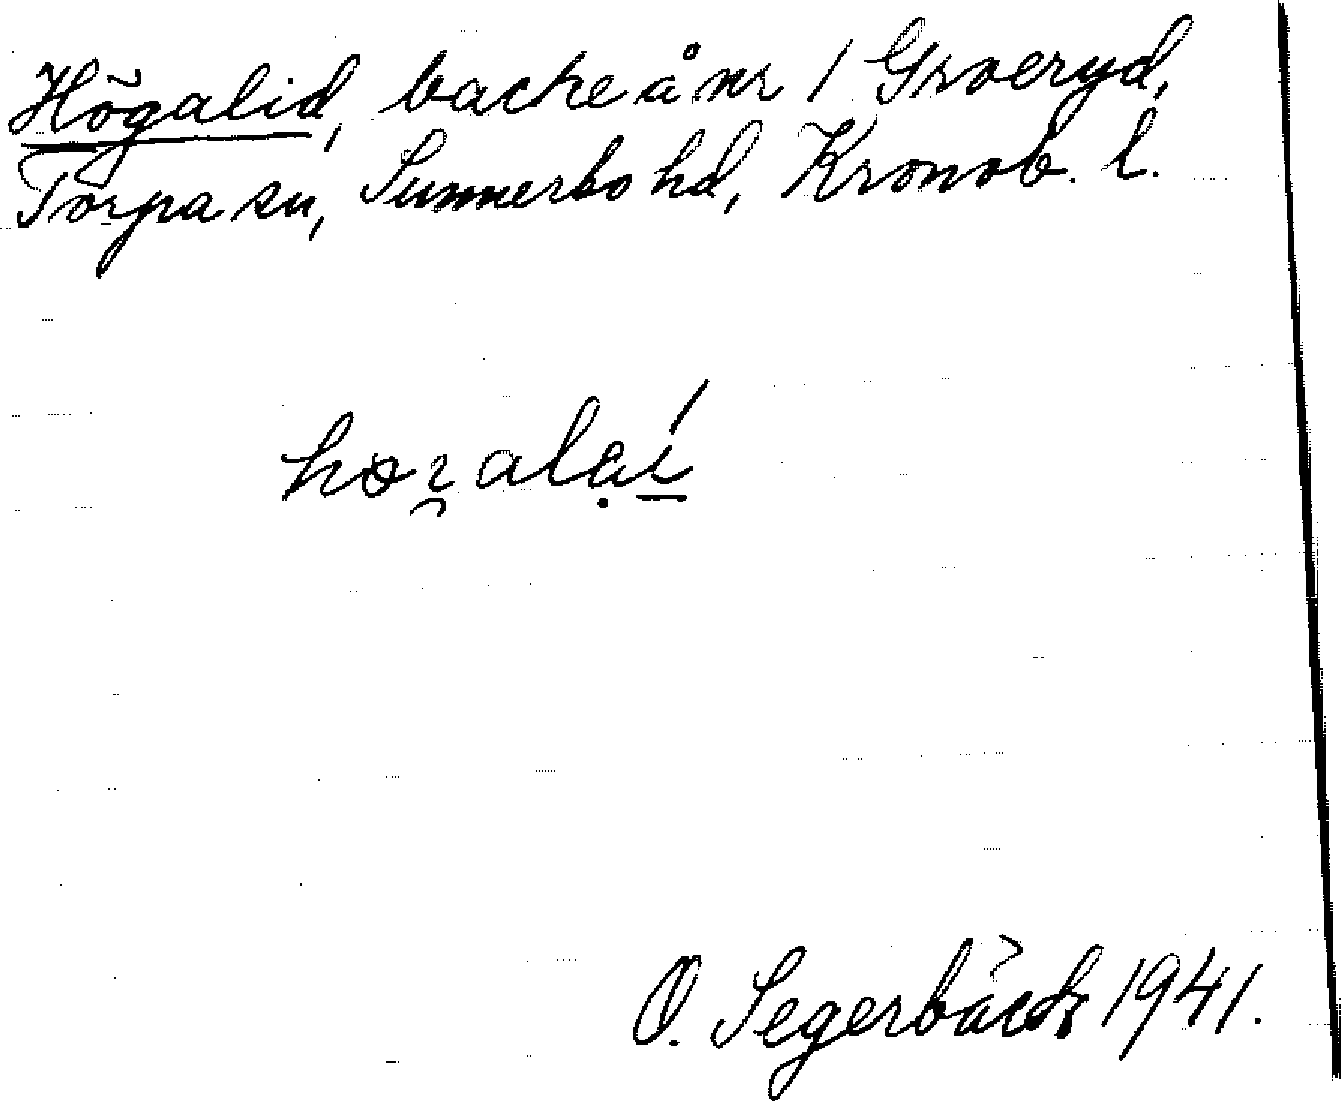 Högalid, backe å nr 1 Groeryd,
Torpa sn, Sunnerbo hd, Kronob. l.
O. Segerbäck 1941.